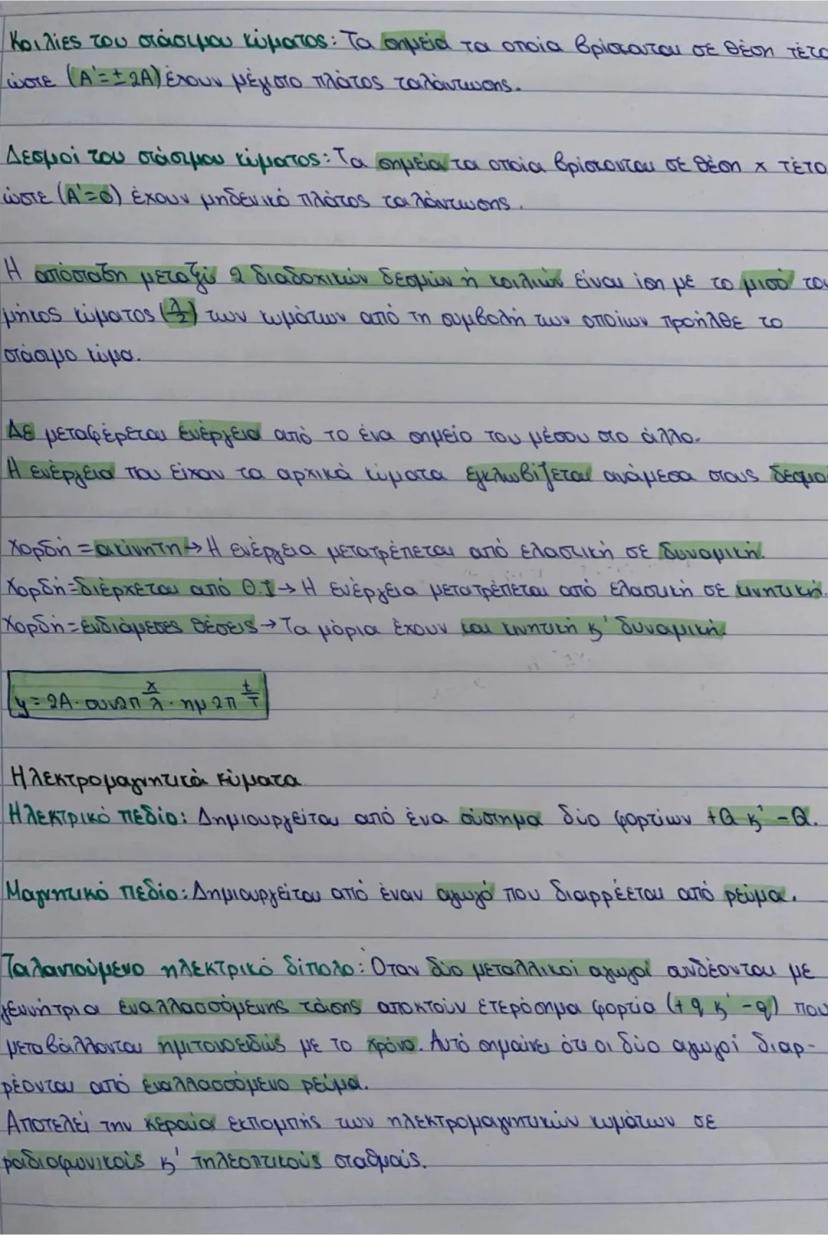 Κοιλίες του στάσιμου κύματος: Τα σημεία τα οποία βρίσκονται σε θέση τέτο
ώστε (A'=±2A) έχουν μέγιστο πλάτος ταλάντωσης.
Δεσμοί του στάσιμου κύματος: Τα σημεία τα οποία βρίσκονται σε θέση x τέτο
ώστε (A'=0) έχουν μηδενικό πλάτος ταλάντωσης.
Η απόσταση μεταξύ 2 διαδοχικών δεσμών ή κοιλιών είναι ίση με το μισό το
μήκος κύματος (λ/2) των κυμάτων από τη συμβολή των οποίων προήλθε το
στάσιμο κύμα.
Δε μεταφέρεται ενέργεια από το ένα σημείο του μέσου στο άλλο.
Η ενέργεια που είχαν τα αρχικά κύματα εγκλωβίζεται ανάμεσα στους δεσμο
Χορδή = ακίνητη → Η ενέργεια μετατρέπεται από ελαστική σε δυναμική.
Χορδή = διέρχεται από Θ.Ι → Η ενέργεια μετατρέπεται από ελαστική σε κινητική.
Χορδή = ενδιάμεσες θέσεις → Τα μόρια έχουν και κινητική κ' δυναμική.
y = 2A · συν2π x/λ · ημ2π t/T
Ηλεκτρομαγνητικά κύματα
Ηλεκτρικό πεδίο: Δημιουργείται από ένα σύστημα δύο φορτίων +Q κ' -Q.
Μαγνητικό πεδίο: Δημιουργείται από έναν αγωγό που διαρρέεται από ρεύμα.
Ταλαντούμενο ηλεκτρικό δίπολο: Όταν δύο μεταλλικοί αγωγοί συνδέονται με
γεννήτρια εναλλασσόμενης τάσης αποκτούν ετερόσημα φορτία (+q κ' -q) που
μεταβάλλονται ημιτονοειδώς με το χρόνο. Αυτό σημαίνει ότι οι δύο αγωγοί διαρ-
ρέονται από εναλλασσόμενο ρεύμα.
Αποτελεί την κεραία εκπομπής των ηλεκτρομαγνητικών κυμάτων σε
ραδιοφωνικούς κ' τηλεοπτικούς σταθμούς.